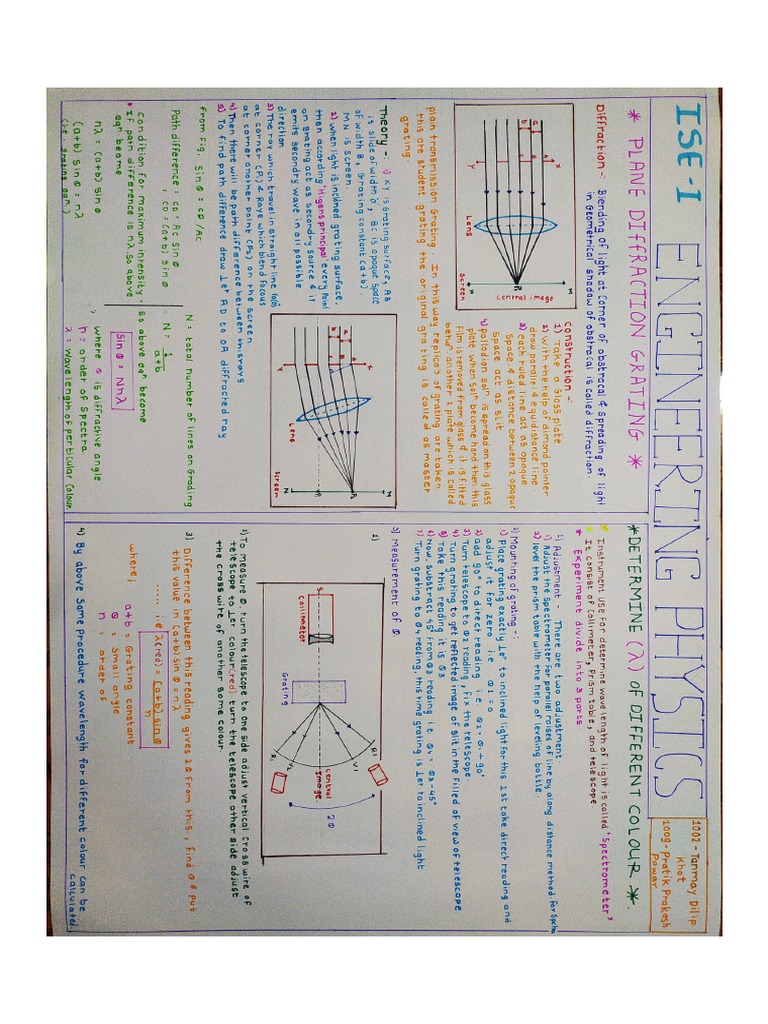 ISE-I ENGINEERING PHYSICS
1002 - Tanmay Dilip
Khot
1009 - Pratik Prakash
Powar
* PLANE DIFFRACTION GRATING *
Diffraction -: Blending of light at corner of obstracal & spreading of light
in Geometrical shadow of obstracal is called diffraction.
Lens
Central image
Screen
Construction -:
1) Take a Glass plate
2) with the help of dimond pointer
draw parallel & equidistance line.
3) each ruled line act as opaque
Space & distance between 2 opaque
Space act as slit
4) pollodion solⁿ. is spread on this glass
plate when solⁿ become hard then this
film is removed from glass & it is fitted
betwⁿ another 2 plate which is called
plain transmission Grating. In this way replica's of grating are taken
this are student grating the original grating is called as master
grating.
Theory -: 1) XY is Grating surface, AB
is slide of width 'a', BC is opaque space
of width B, Grating constant (a+b).
MN is screen.
2) when light is inclined grating surface,
then according Higens principal every Point
on grating act as secondry source & it
emits secondry wave in all possible
direction
3) The ray which travel in straight line focus
at corner (P₀) & Rays which blend focus
at corner another point (P₁) on the screen.
4) Then there will be path difference between this rays
5) To find path difference draw ⊥er AD to OA diffracted ray
Lens
Screen
from Fig. sin θ = CD/AC
Path difference, CD = AC sin θ
, CD = (a+b) sin θ
condition for maximum intensity.
* If path difference is nλ. So above
eqⁿ beome
nλ = (a+b) sin θ
(a+b) sin θ = nλ
(i.e. grating eqⁿ.)
N = total number of lines on Grading
∴ N = 1/a+b
So above eqⁿ become
Sin θ = Nnλ
where θ is diffractive angle
n = order of spectra
λ = wavelength of perticular colour.
* DETERMINE (λ) OF DIFFERENT COLOUR *
* Instrument use for determine wavelength of light is called 'spectrometer'
* It consist of collimeter, Prism table, and telescope
* Experiment divide into 3 parts
1) Adjustment - There are two adjustment
1) Adjust the spectrometer for parallel raises of line by along distance method for
2) level the prism table with the help of leveling bottle.
2) Mounting of grating -:
1) Place grating exactly ⊥er to inclined light for this 1st take direct reading and
adjust it for zero i.e θ₁ = 0
2) add 90° to direct reading i.e. θ₂ = θ₁ + 90°
3) Turn telescope to θ₂ reading, fix the telescope.
4) Turn grating to get reflected image of slit in the filled of view of telescope
5) Take this reading it is θ3
6) Now, substract 45° from θ3 reading i.e θ4 = θ3 - 45°
7) Turn grating to θ4 reading, this time grating is ⊥er to inclined light
3) Measurement of θ
1)
collimator
Grating
central
Image
2θ
R1
V1
R1
1) To measure θ, turn the telescope to one side adjust vertical cross wire of
telescope to ⊥er colour (red) turn the telescope other side adjust
the cross wire of another some colour.
3) Difference between this reading gives 2θ from this, find θ & put
this value in (a+b) sin θ = nλ
...... i.e λ(red) = (a+b) sin θ / n
where, a+b = Grating constant
θ = small angle
n = order of
4) By above same procedure wavelength for different colour can be
calculated.